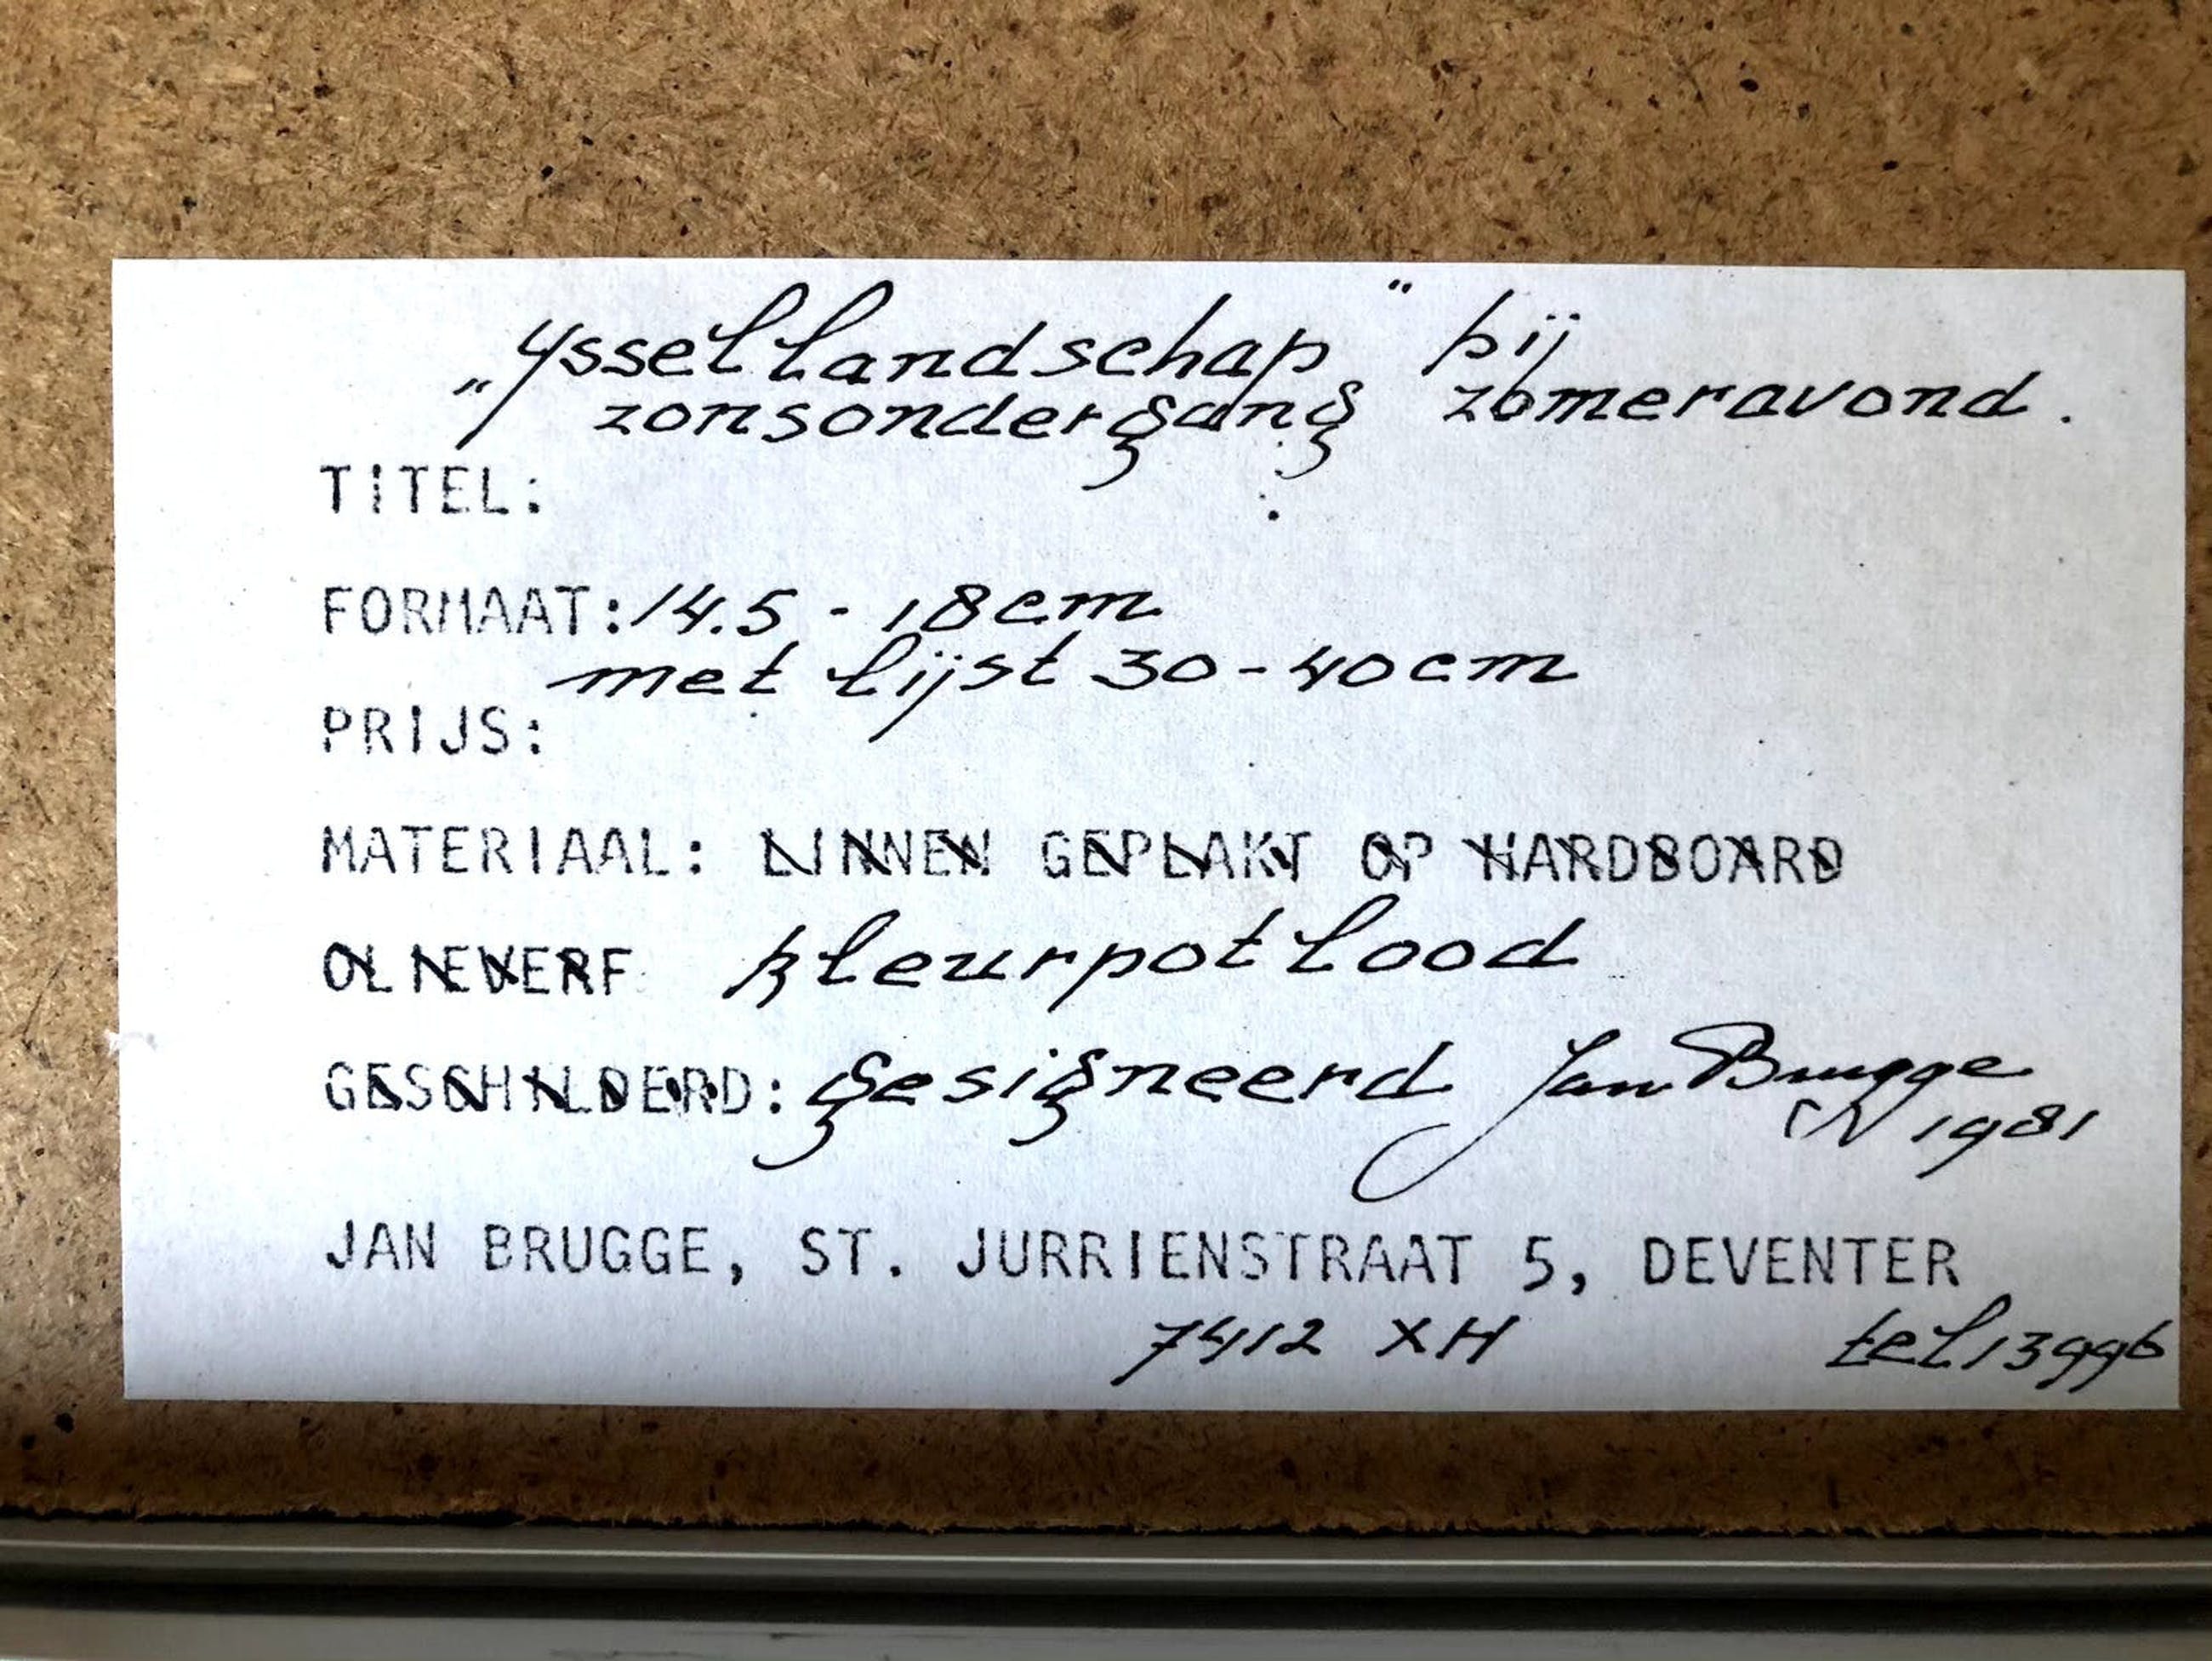 "Yssellandschap" bij
zonsondergang zomeravond.
TITEL:
FORMAAT: 14.5 - 18cm
met lijst 30-40cm
PRIJS:
MATERIAAL: LINNEN GEPLAKT OP HARDBOARD
OLIEVERF kleurpotlood
GESCHILDERD: gesigneerd Jan Brugge
1981
JAN BRUGGE, ST. JURRIENSTRAAT 5, DEVENTER
7412 XH tel 13996